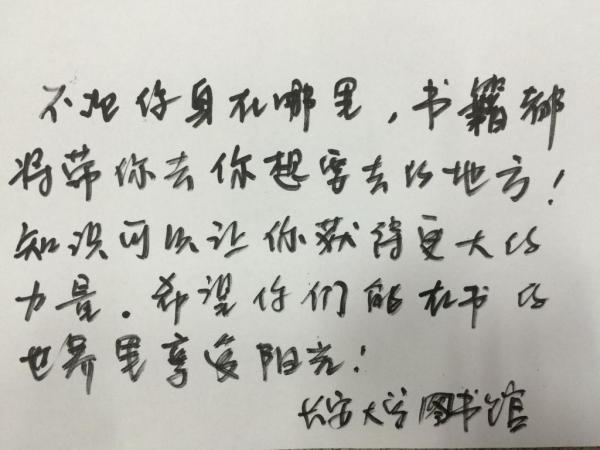 不论你身在哪里，书籍都
将带你去你想要去的地方！
知识可以让你获得更大的
力量。希望你们能在书的
世界里享受阳光！
长安大学图书馆